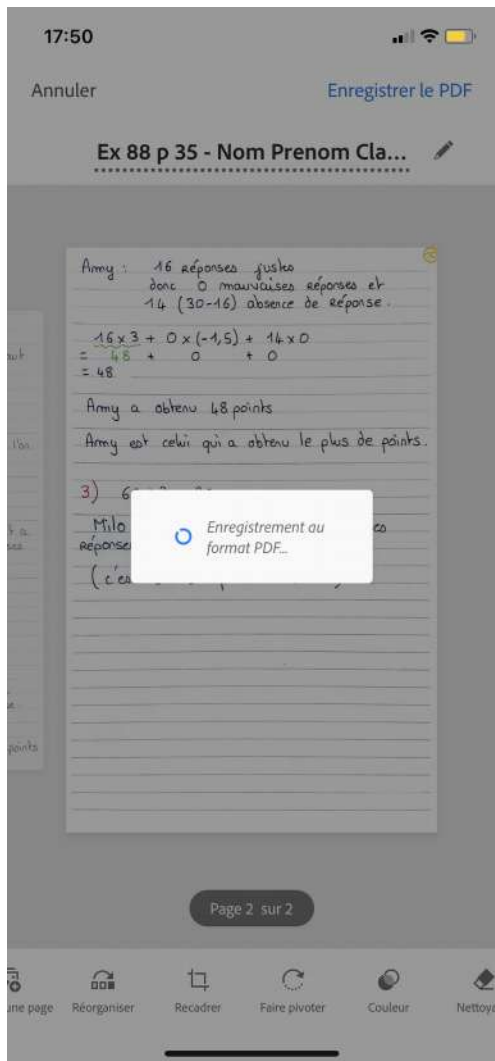 17:50
Annuler
Enregistrer le PDF
Ex 88 p 35 - Nom Prenom Cla...
Amy : 16 réponses justes
donc 0 mauvaises réponses et
14 (30-16) absence de réponse.
16 x 3 + 0 x (-1,5) + 14 x 0
= 48 + 0 + 0
= 48
Amy a obtenu 48 points
Amy est celui qui a obtenu le plus de points.
3)
Milo
Réponse
Enregistrement au
format PDF...
points
Page 2 sur 2
une page
Réorganiser
Recadrer
Faire pivoter
Couleur
Nettoy